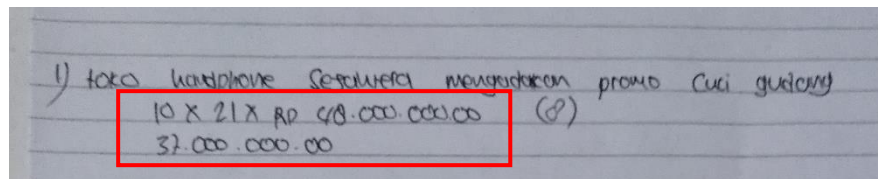 1) toko handphone Sejahtera mengadakan promo cuci gudang
10 x 21 x RP 48.000.000.00 (8)
37.000.000.00